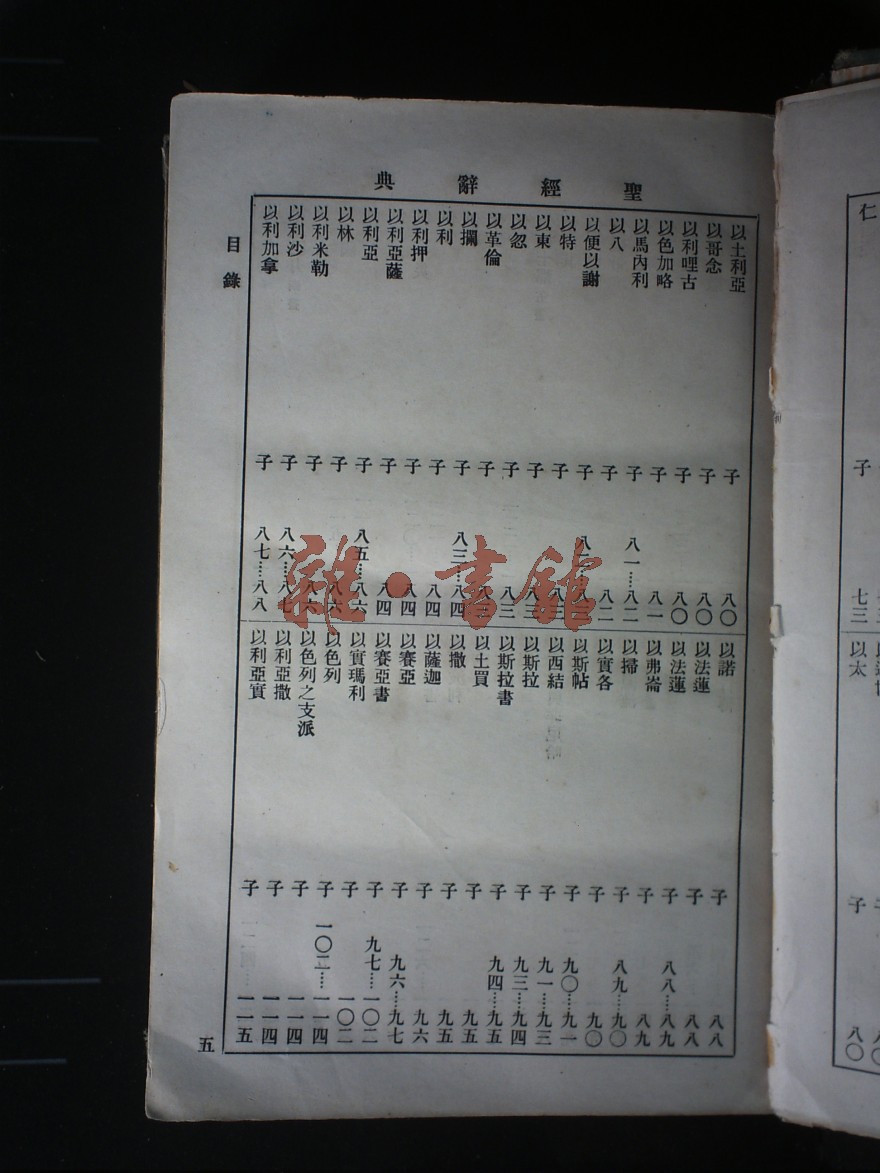 聖經辭典
以土利亞 子 八〇
以哥念 子 八〇
以利哩古 子 八〇
以色加略 子 八一
以馬內利 子 八一……八二
以八 子 八二
以便以謝 子
以特 子 八三
以東 子 八三
以忽 子 八三
以革倫 子 八三
以攔 子 八三……八四
以利 子 八四
以利押 子 八四
以利亞薩 子 八四
以利亞 子 八五……八六
以林 子 八六
以利米勒 子 八六
以利沙 子 八六……八七
以利加拿 子 八七……八八
以諾 子 八八
以法蓮 子 八八
以法蓮 子 八八……八九
以弗崙 子 八九
以掃 子 八九……九〇
以實各 子 九〇
以斯帖 子 九〇……九一
以西結 子 九一……九三
以斯拉 子 九三……九四
以斯拉書 子 九四……九五
以土買 子 九五
以撒 子 九五
以薩迦 子 九六
以賽亞 子 九六……九七
以賽亞書 子 九七……一〇二
以實瑪利 子 一〇二
以色列 子 一〇二……一一四
以色列之支派 子 一一四
以利亞撒 子 一一四
以利亞實 子 一一五
目錄
五
雜·書館
仁 子 七三
以太 子 八〇